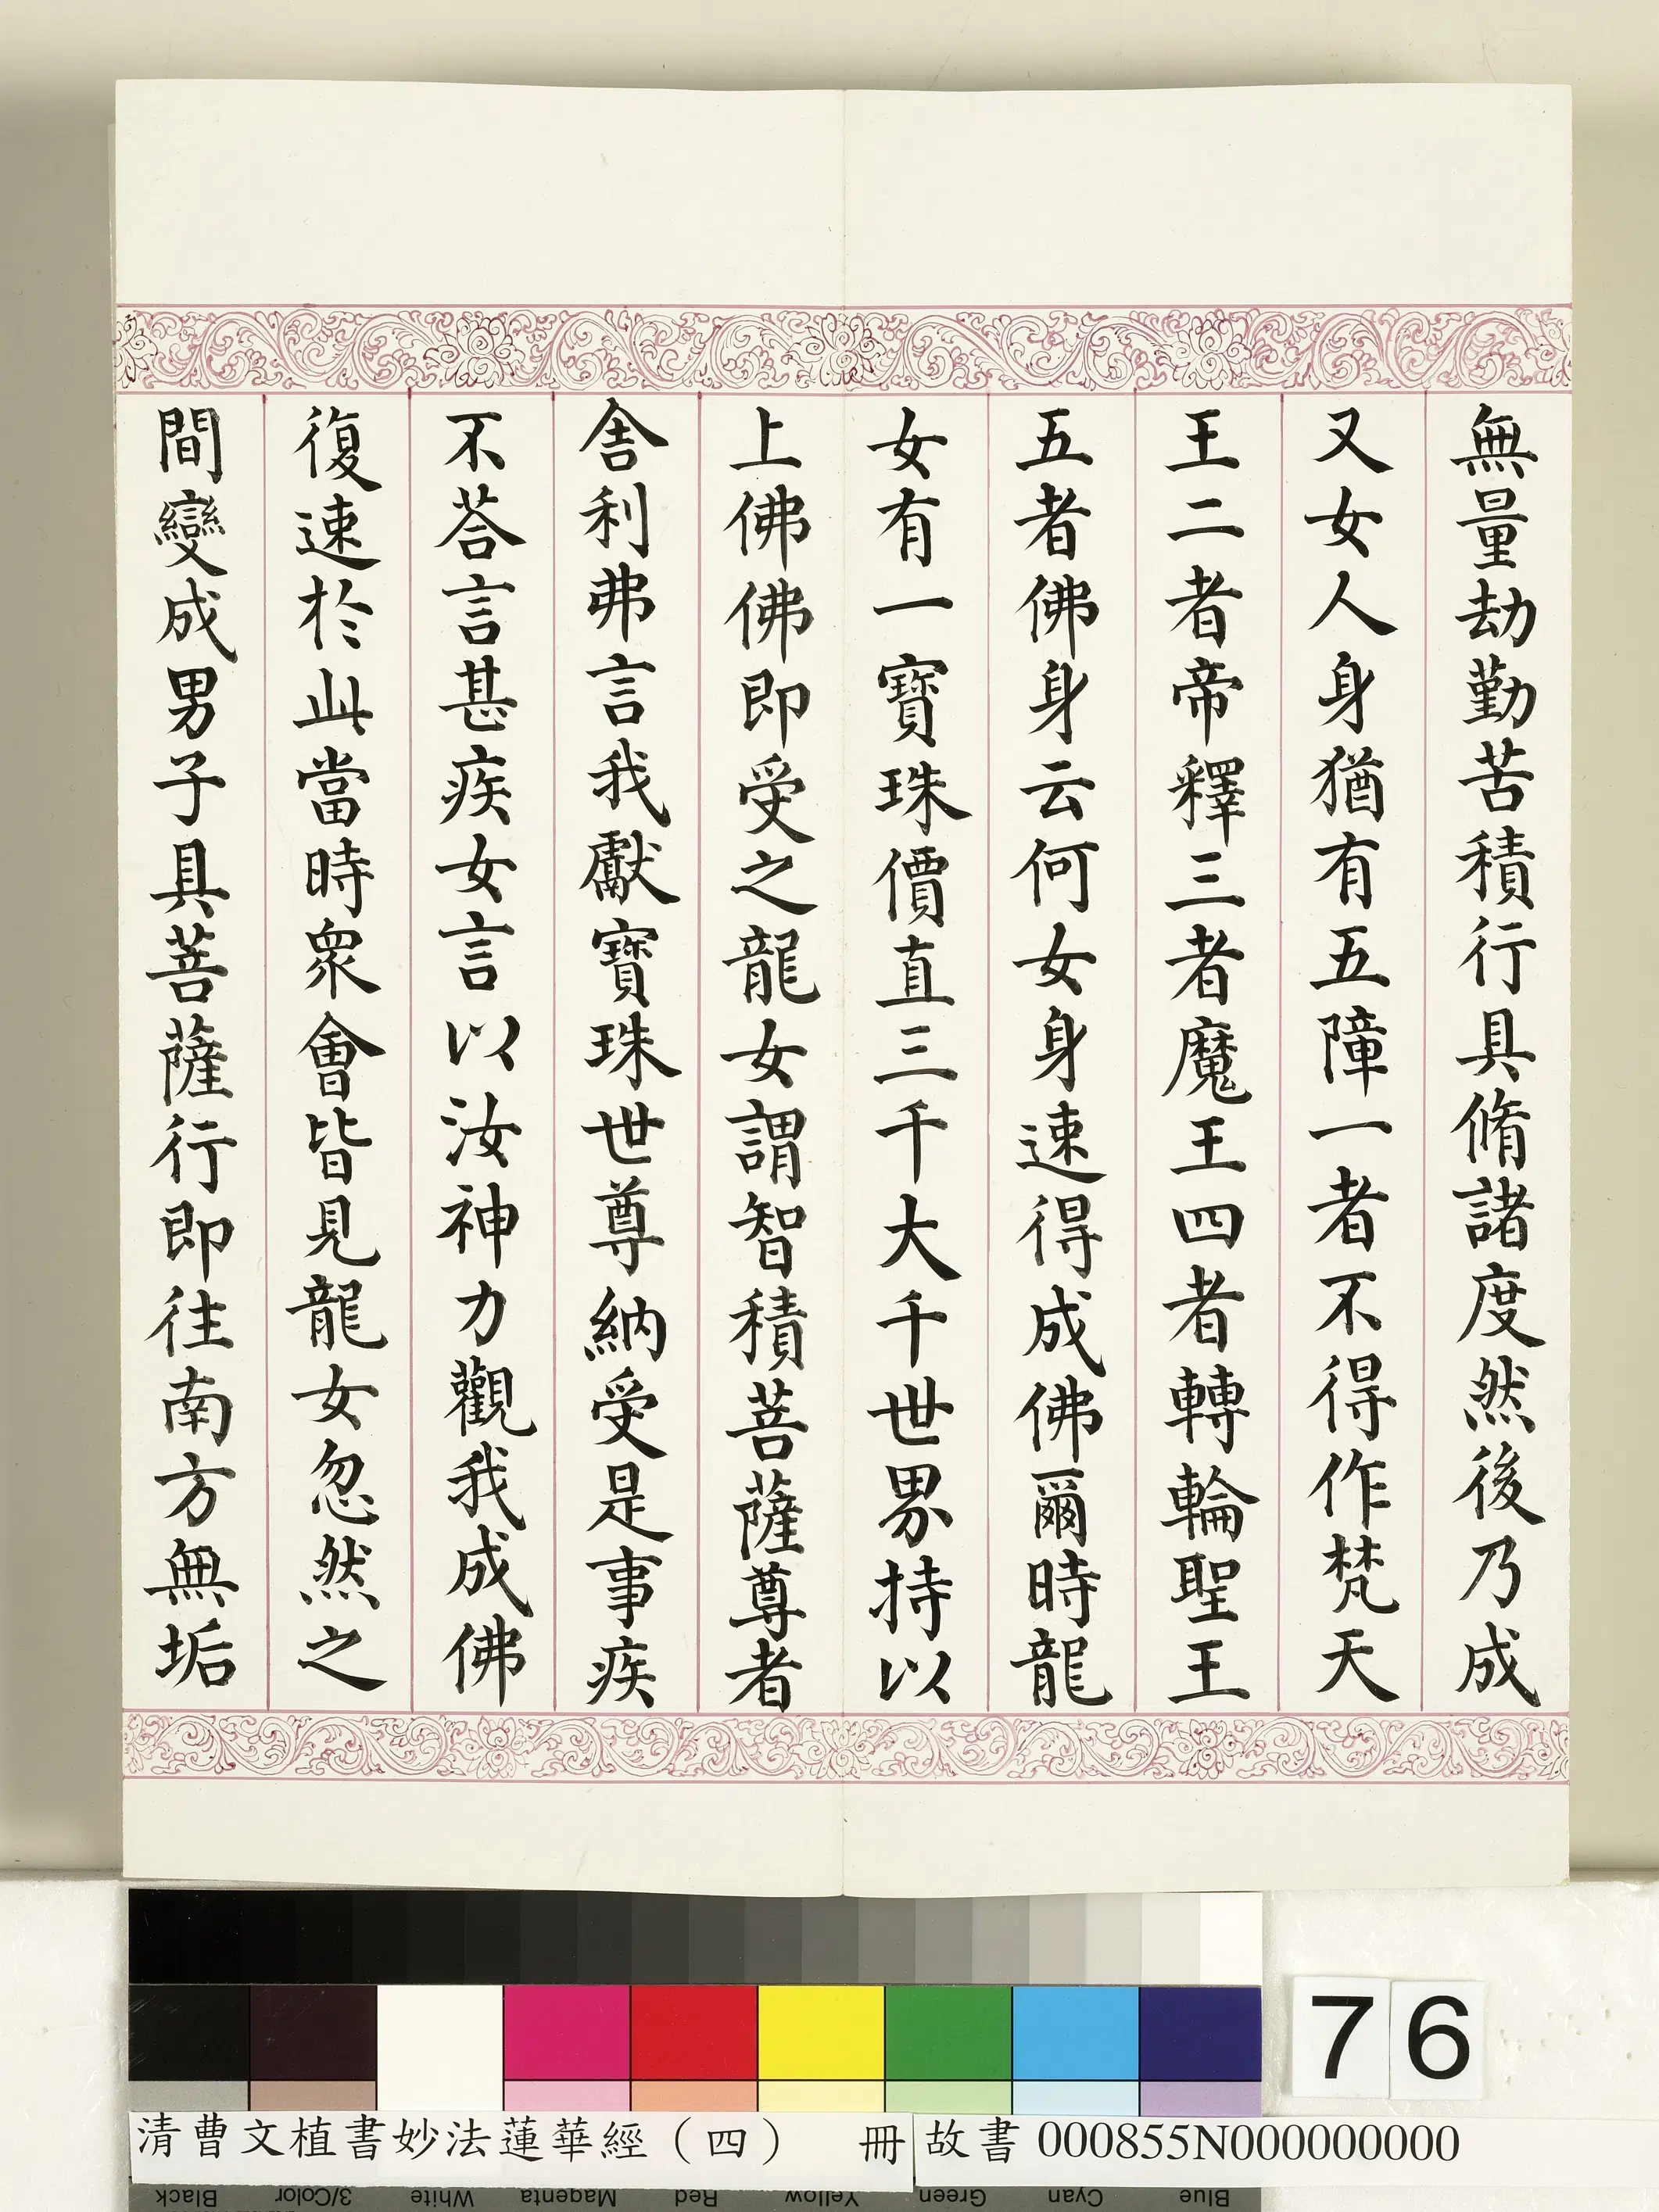 無量劫勤苦積行具脩諸度然後乃成
又女人身猶有五障一者不得作梵天
王二者帝釋三者魔王四者轉輪聖王
五者佛身云何女身速得成佛爾時龍
女有一寶珠價直三千大千世界持以
上佛佛即受之龍女謂智積菩薩尊者
舍利弗言我獻寶珠世尊納受是事疾
不荅言甚疾女言以汝神力觀我成佛
復速於此當時眾會皆見龍女忽然之
間變成男子具菩薩行即往南方無垢
76
清曹文植書妙法蓮華經（四） 冊
故書 000855N000000000
Black 3/Color White Magenta Red Yellow Green Cyan Blue